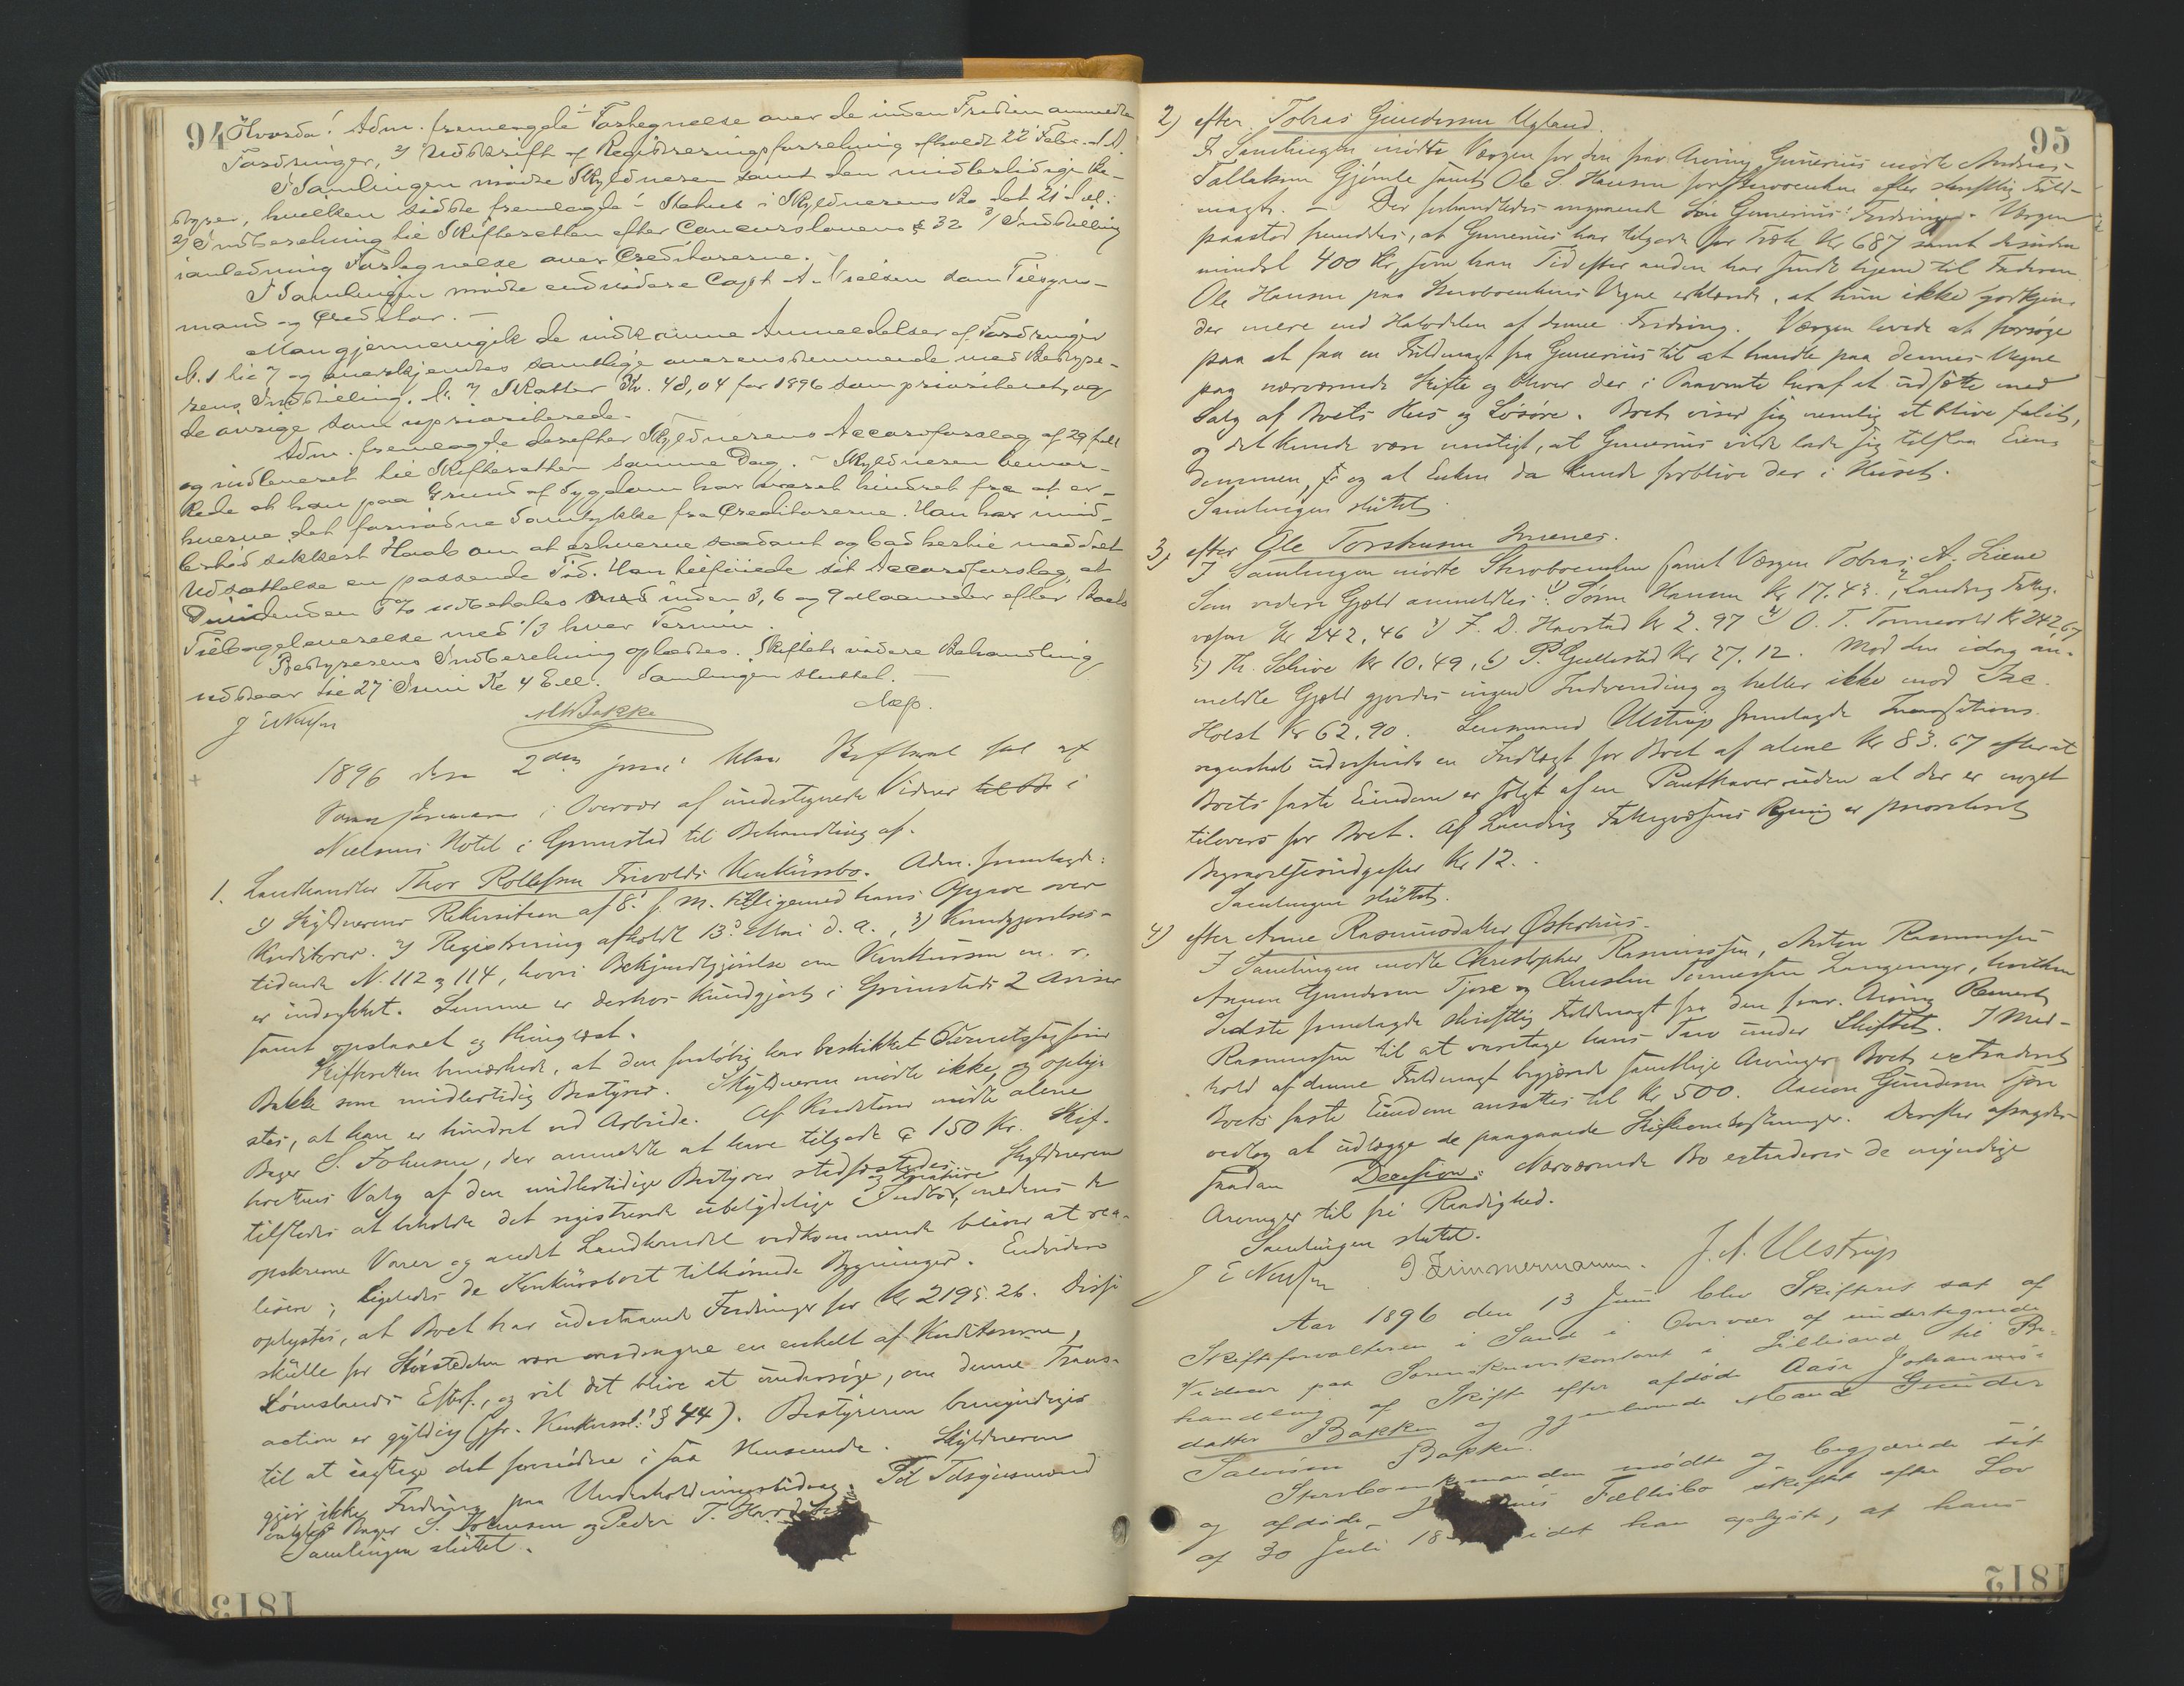 94
Hvorda! Adm. fremlagde Fortegnelse over de inden Fristen anmeldte
Fordringer, 2) Udskrift af Registreringsforretning afholdt 22 Febr. d. A.
I Samlingen mødte Skyldneren samt den midlertidige Be-
styrer, hvilken sidste fremlagde Status i Skyldnerens Bo
2) Indberetning til Skifteretten efter Concurslovens § 32 3) Indstilling
i anledning Fortegnelse over Creditorerne.
I Samlingen mødte endvidere Capt A. Nielsen som Tilsyns-
mand og Creditor.
Man gjennemgik de indkomne Anmeldelser af Fordringer
N. 1 til 7 og anerkjendtes samtlige overensstemmende med Besty-
rens Indstilling. N. 7 Skatter Kr. 48,04 for 1896 som prioriteret, og
de øvrige som uprioriterede.
Adm. fremlagde derefter Skyldnerens Accordforslag af 29 f.M.
og indleveret til Skifteretten samme Dag. Skyldneren bemær-
kede at han paa Grund af Sygdom har været hindret fra at er-
hverve det fornødne Samtykke fra Creditorerne. Han har imid-
lertid sikkert Haab om at erhverve saadant og bad hertil meddelt
Udsættelse en passende Tid. Han tilføiede sit Accordforslag, at
Dividenden udbetales inden 3, 6 og 9 Maaneder efter Boets
Tilbagelevererelse med 1/3 hver Termin.
Bestyrerens Indberetning oplæstes. Skiftets videre Behandling
udstaar til 27 Juni Kl 4 Eft. Samlingen sluttet.
MWBakke
1896 den 2den juni blev Skifteret sat af
Sorenskriveren i Overvær af undertegnede Vidner i
Nielsens Hotel i Grimstad til Behandling af.
1. Landhandler Thor Rollefsen Frivolds Konkursbo. Adm. fremlagde:
1) Skyldnerens Rekvisition af 8. f. M. tilligemed hans Opgave over
Kreditorer. 2) Registrering afholdt 13. Mai d. A., 3) Kundgjørelses-
tidende N. 112 og 114, hvori Bekjendtgjørelse om Konkursen m. v.
er indrykket. Samme er derhos kundgjort i Grimstads 2 Aviser
samt opslaaet og thinglæst.
Skifteretten bemærkede, at den foreløbig har beskikket Overretssagfører
Bakke som midlertidig Bestyrer. Skyldneren mødte ikke, og oply-
stes, at han er hindret ved Arbeide. Af Kreditorer mødte alene
Bager S. Johnsen, der anmeldte at have tilgode 150 Kr. Skif-
terettens Valg af den midlertidige Bestyrer stadfæstedes. Skyldneren
tilstedes at beholde det registrerede ubetydelige Indbo, medens de
opskrevne Varer og andet Landhandel vedkommende bliver at rea-
lisere; ligeledes de Konkursboet tilhørende Bygninger. Endvidere
oplystes, at Boet har udestaaende Fordringer for Kr 2195.26. Disse
skulle for Størstedelen være overdragne en enkelt af Kreditorerne,
og vil det blive at undersøge, om denne Trans-
action er gyldig (jfr. Konkursl. § 44). Bestyreren bemyndiges
til at iagttage det fornødne i saa Henseende. Skyldneren
gjør ikke Fordring paa Underholdningsbidrag. Til Tilsynsmænd
valgtes Bager S. Johnsen og Peder T.
Samlingen sluttet.
1813
95
2) efter Tobias Gundersen Ugland.
I Samlingen mødte Værgen for den frav. Arving Gunerius mødte Andreas
Tallaksen Gjømle samt Ole S. Hansen for Stervboenken efter skriftlig Fuld-
magt. – Der forhandledes angaaende Søn Gunerius' Fordring. Værgen
paastod fremdeles, at Gunerius har tilgode for Kr 687 samt desuden
mindst 400 Kr, som han Tid efter anden har sendt hjem til Faderen
Ole Hansen paa Stervboenkens Vegne erklærede, at hun ikke godkjen-
der mere end Halvdelen af denne Fordring. Værgen lovede at forsøge
paa at faa en Fuldmagt fra Gunerius til at handle paa dennes Vegne
paa nærværende Skifte og bliver der i Paavente heraf at udsætte med
Salg af Boets Hus og Løsøre. Boet viser sig nemlig at blive fallit,
og det kunde være muligt, at Gunerius vilde lade sig tilslaa Eien-
dommen, og at Enken da kunde forblive der i Huset.
Samlingen sluttet
3) efter Ole Torstensen
I Samlingen mødte Stervboenken samt Værgen Tobias A. Liene
Som videre Gjæld anmeldtes: 1) Sørn Hansen Kr 17.43., 2) Landvig Fattig-
væsen Kr 242.46 3) F. D. Havstad Kr 2.97 4) O. T. Tønnevold Kr 242,67
5) Th. Schive Kr 10.49, 6) P. Gullestad Kr 27.12. Mod den idag an-
meldte Gjæld gjordes ingen Indvending og heller ikke mod Jac.
Holst Kr 62.90. Lensmand Ulstrup fremlagde
regnskab udvisende en Indtægt for Boet af alene Kr 83.67 efterat
Boets faste Eiendom er solgt af en Panthaver uden at der er noget
tilovers for Boet. Af Landvig Fattigvæsens Regning er prioriteret
Begravelsesudgifter Kr 12.
Samlingen sluttet.
4) efter Anne Rasmusdatter Østerhus.
I Samlingen mødte Christopher Rasmussen, Anton Rasmussen
Aanon Gundersen Tjore og Christen Tønnessen Langemyr, hvilken
Sidste fremlagde skriftlig Fuldmagt fra den frav. Arving Reinert
Rasmussen til at varetage hans Tarv under Skiftet. I Med-
hold af denne Fuldmagt begjærede samtlige Arvinger Boet extraderet
Boets faste Eiendom ansattes til Kr 500. Aanon Gundersen Tjore
vedtog at udlægge de paagaaende Skifteomkostninger. Derefter afsagdes
saadan Decision: Nærværende Bo extraderes de myndige
Arvinger til fri Raadighed.
Samlingen sluttet.
J Zimmermann. J. A. Ulstrup
Aar 1896 den 13 Juni blev Skifteret sat af
Skifteforvalteren i Sand i Overvær af undertegnede
Vidner paa Sorenskriverkontoret i Lillesand til Be-
handling af Skifte efter afdøde Aase Johannes-
datter Bakken og gjenlevende Mand Gunder
Salvesen Bakken.
Stervboenkemanden mødte og begjærede sit
og afdøde Fællesbo skiftet efter Lov
af 30 Juli 18 idet han oplyste, at hans
1812